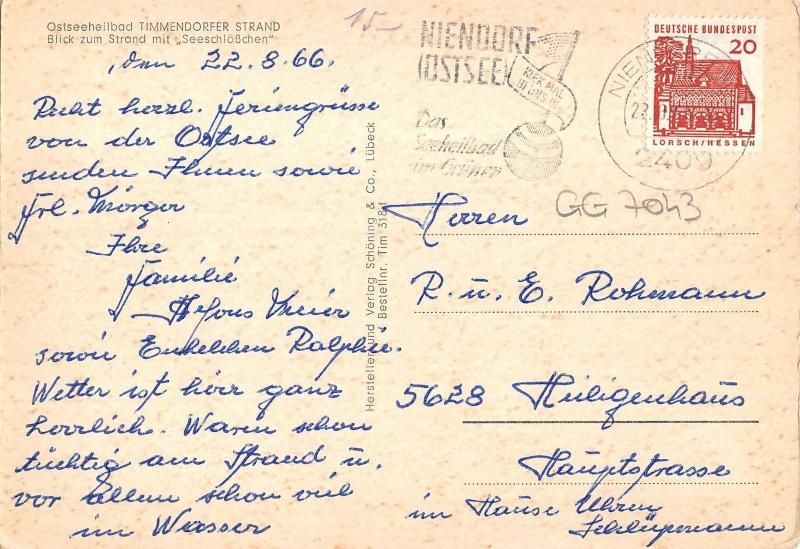 Ostseeheilbad TIMMENDORFER STRAND
Blick zum Strand mit „Seeschlößchen“
den 22.8.66.
Recht herzl. Feriengrüsse
von der Ostsee
senden Ihnen sowie
Frl.
Ihre
Familie
Alfons Meier
sowie Enkelchen Ralphie.
Wetter ist hier ganz
herrlich. Waren schon
tüchtig am Strand u.
vor allem schon viel
im Wasser
Hersteller und Verlag Schöning & Co., Lübeck
Bestellnr. Tim 3181
15-
NIENDORF
(OSTSEE)
Das
Seeheilbad
im Grünen
NIEND
2409
DEUTSCHE BUNDESPOST
20
LORSCH/HESSEN
GG 7043
Herren
R. u. E. Rohmann
5628 Heiligenhaus
Hauptstrasse
im Hause Uhren